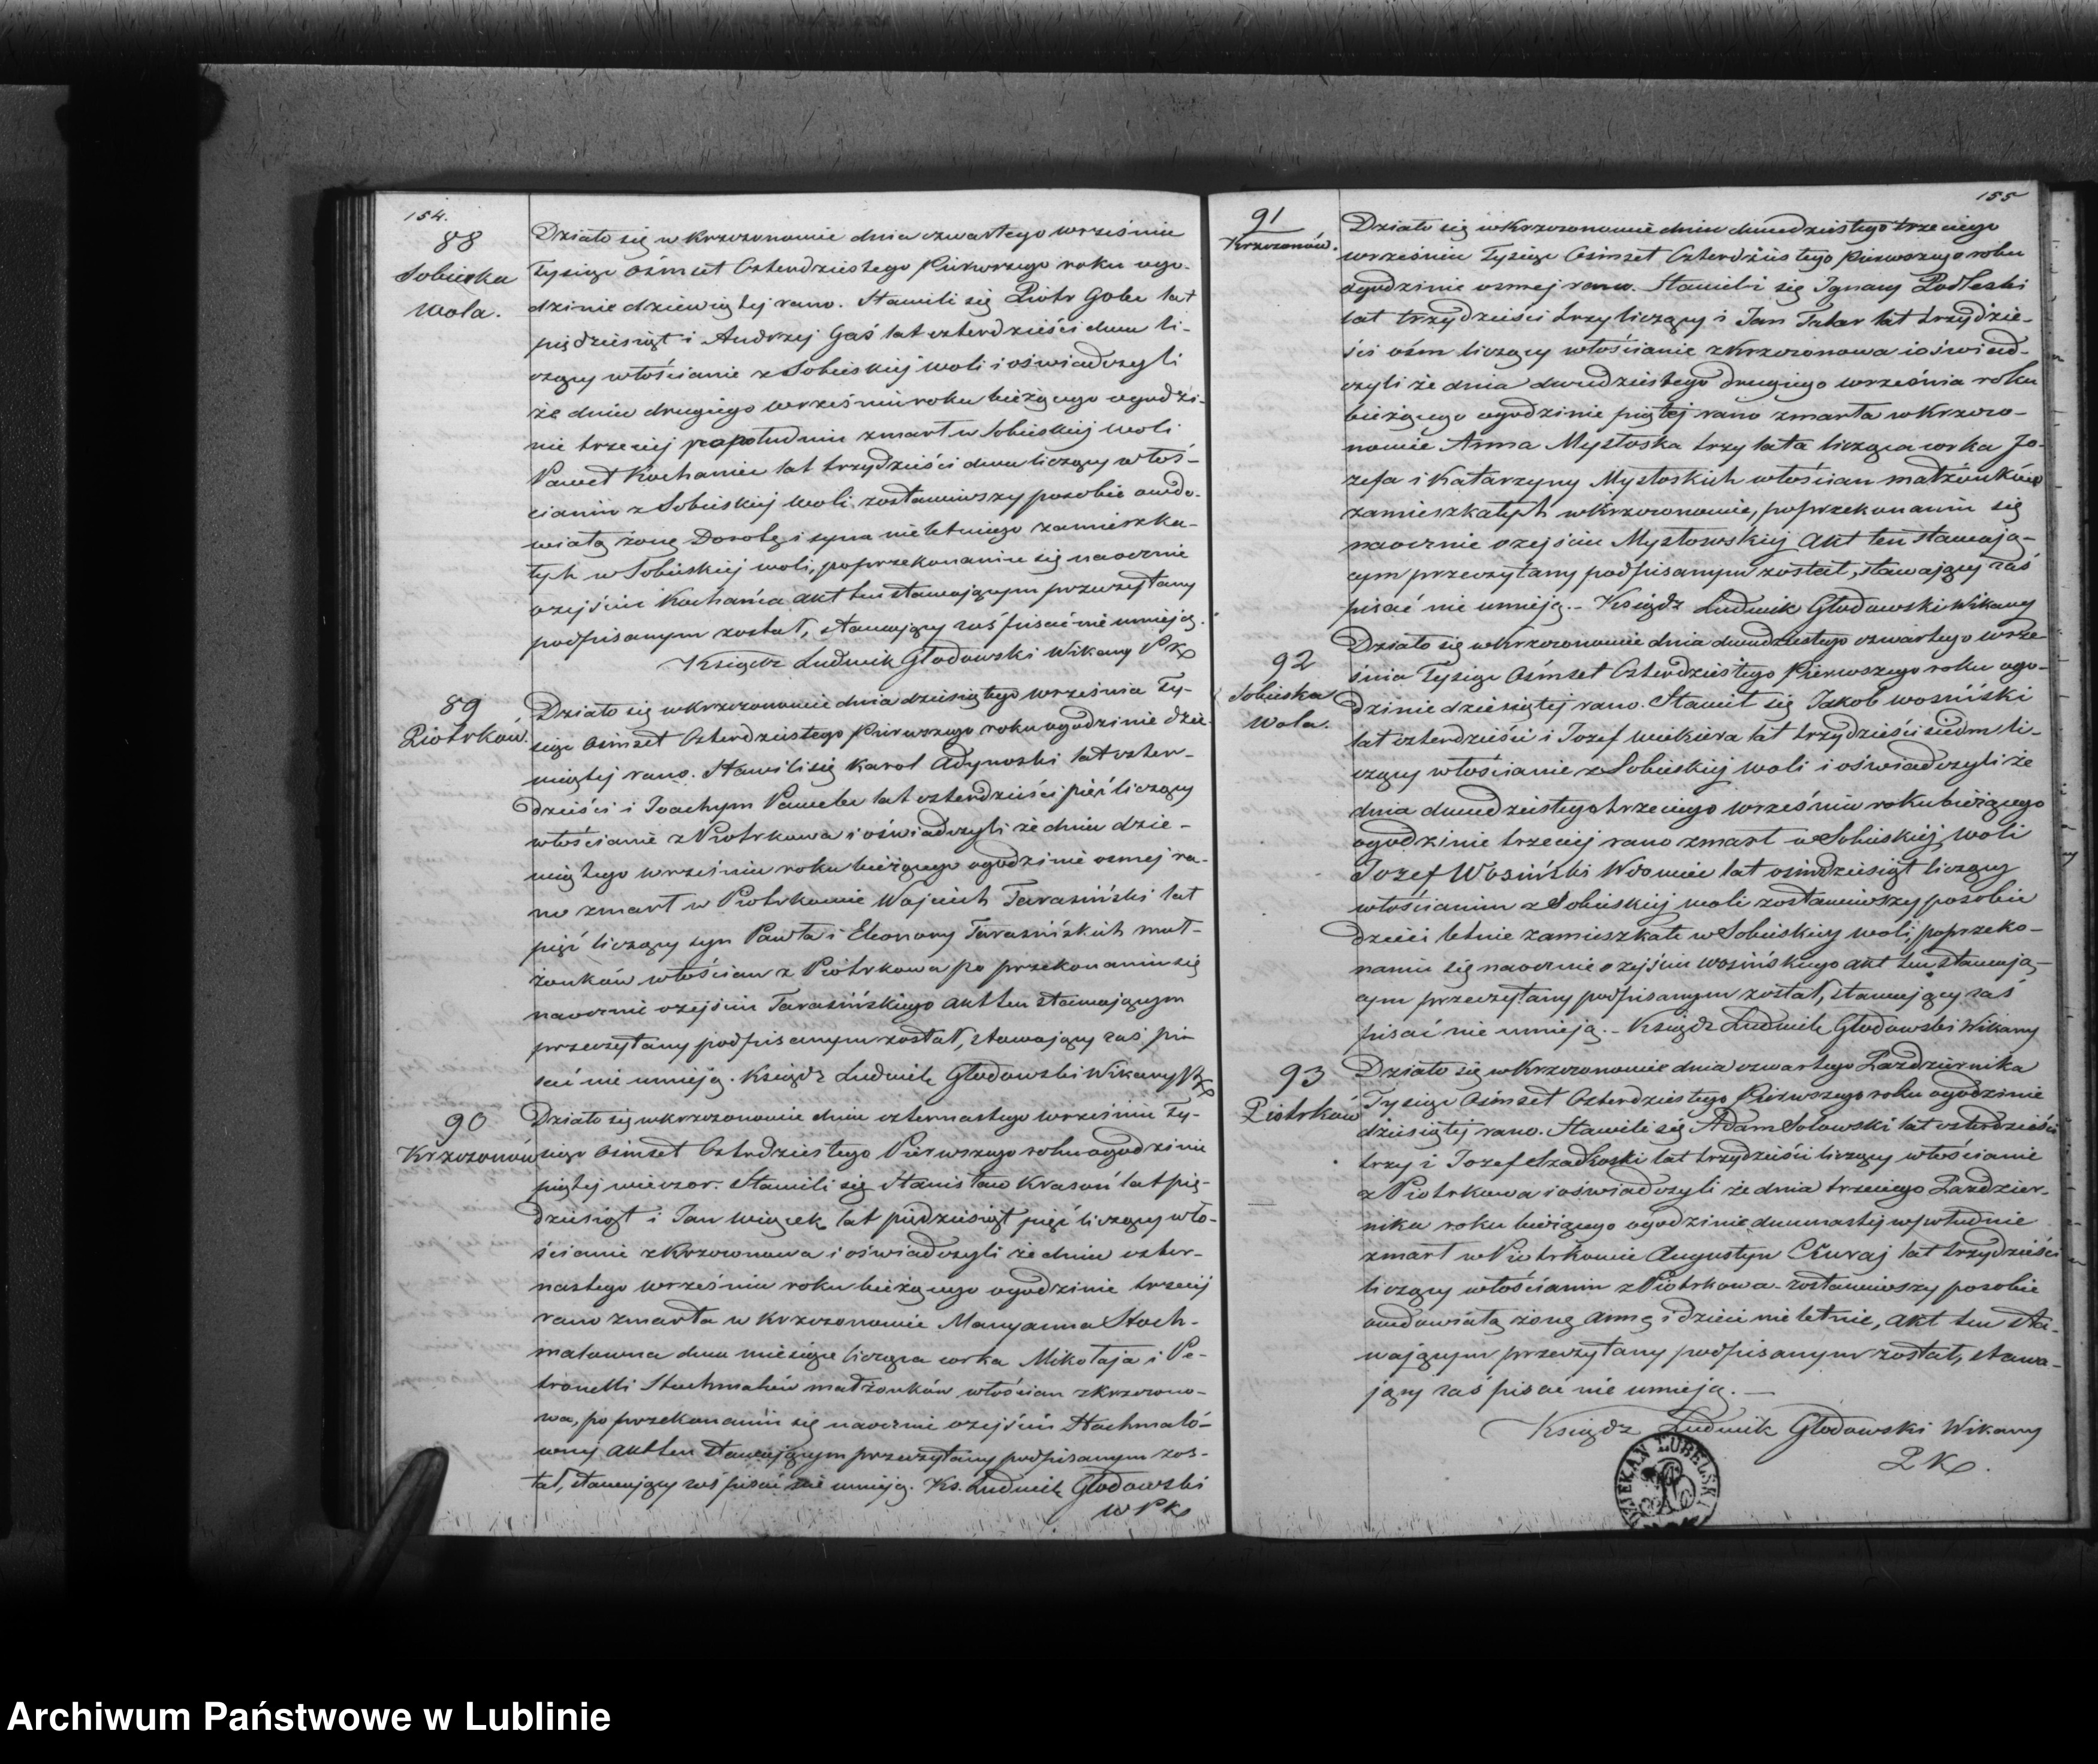 154.
88
Sobieska
Wola.
Działo się w Krzczonowie dnia czwartego września
Tysiąc Ośmset Czterdziestego Pierwszego roku ogo-
dzinie dziewiątej rano. Stawili się Piotr Goler lat
pięćdziesiąt i Andrzej Gaś lat czterdzieści dwa li-
czący włościanie z Sobieskiej Woli i oświadczyli
że dnia drugiego września roku bieżącego ogodzi-
nie trzeciej popołudniu zmarł w Sobieskiej Woli
Paweł Kochaniec lat trzydzieści dwa liczący włoś-
cianin z Sobieskiej Woli zostawiwszy posobie owdo-
wiałą żonę Dorotę i syna nieletniego zamieszka-
łych w Sobieskiej woli, poprzekonaniu się naocznie
ozejściu Kochańca akt ten stawającym przeczytany
podpisanym został, stawający zaś pisać nie umieją.
Ksiądz Ludwik Głodowski Wikary PK
89
Piotrków.
Działo się w Krzczonowie dnia dziesiątego września Ty-
siąc Ośmset Czterdziestego Pierwszego roku ogodzinie dzie-
wiątej rano. Stawili się Karol Adynoski lat czter-
dzieści i Joachym Pawelec lat czterdzieści pięć liczący
włościanie z Piotrkowa i oświadczyli że dnia dzie-
wiątego września roku bieżącego ogodzinie osmej ra-
no zmarł w Piotrkowie Wojciech Tarasiński lat
pięć liczący syn Pawła i Eleonory Tarasińskich mał-
żonków włościan z Piotrkowa po przekonaniu się
naocznie ozejściu Tarasińskiego akt ten stawającym
przeczytany podpisanym został, stawający zaś pi-
sać nie umieją. Ksiądz Ludwik Głodowski Wikary PK
90
Krzczonów
Działo się w Krzczonowie dnia czternastego września Ty-
siąc Ośmset Czterdziestego Pierwszego roku ogodzinie
piątej wieczor. Stawili się Stanisław Krasoń lat pię-
dziesiąt i Jan Wiącek lat piędziesiąt pięć liczący wło-
ścianie z Krzczonowa i oświadczyli że dnia czter-
nastego września roku bieżącego ogodzinie trzeciej
rano zmarła w Krzczonowie Maryanna Stoch-
malowna dwa miesiące licząca corka Mikołaja i Pe-
tronelli Stochmalów małżonków włościan z Krzczono-
wa, po przekonaniu się naocznie ozejściu Stochmaló-
wnej akt ten stawającym przeczytany podpisanym zos-
tał, stawający zaś pisać nie umieją. Ks. Ludwik Głodowski
W P K
155
91
Krzczonów.
Działo się w Krzczonowie dnia dwudziestego trzeciego
września Tysiąc Ośmset Czterdziestego Pierwszego roku
ogodzinie osmej rano. Stawili się Ignacy Podleski
lat trzydzieści trzy liczący i Jan Tatar lat trzydzie-
ści ośm liczący włościanie z Krzczonowa i oświad-
czyli że dnia dwudziestego drugiego września roku
bieżącego ogodzinie piątej rano zmarła w Krzczo-
nowie Anna Mysłoska trzy lata licząca corka Jo-
zefa i Katarzyny Mysłoskich włościan małżonków
zamieszkałych w Krzczonowie, poprzekonaniu się
naocznie ozejściu Mysłowskiej Akt ten stawają-
cym przeczytany podpisanym został, stawający zaś
pisać nie umieją. - Ksiądz Ludwik Głodowski Wikary
92
Sobieska
Wola.
Działo się w Krzczonowie dnia dwudziestego czwartego wrze-
śnia Tysiąc Ośmset Czterdziestego Pierwszego roku ogo-
dzinie dziesiątej rano. Stawił się Jakób Wosiński
lat czterdzieści i Jozef Wiekiera lat trzydzieści siedm li-
czący włościanie z Sobieskiej Woli i oświadczyli że
dnia dwudziestego trzeciego września roku bieżącego
ogodzinie trzeciej rano zmarł w Sobieskiej Woli
Jozef Wosiński Wdowiec lat ośmdziesiąt liczący
włościanin z Sobieskiej woli zostawiwszy posobie
dzieci letnie zamieszkałe w Sobieskiej woli, poprzeko-
naniu się naocznie ozejściu Wosińskiego akt ten stawają-
cym przeczytany podpisanym został, stawający zaś
pisać nie umieją. - Ksiądz Ludwik Głodowski Wikary
93
Piotrków
Działo się w Krzczonowie dnia czwartego Pazdziernika
Tysiąc Ośmset Czterdziestego Pierwszego roku ogodzinie
dziesiątej rano. Stawili się Adam Sołowski lat czterdzieści
trzy i Jozef Szadkoski lat trzydzieści liczący włościanie
z Piotrkowa i oświadczyli że dnia trzeciego Pazdzier-
nika roku bieżącego ogodzinie dwunastej w południe
zmarł w Piotrkowie Augustyn Czuraj lat trzydzieści
liczący włościanin z Piotrkowa zostawiwszy posobie
owdowiałą żonę Annę i dzieci nie letnie, Akt ten sta-
wającym przeczytany podpisanym został, stawa-
jący zaś pisać nie umieją. -
Ksiądz Ludwik Głodowski Wikary
P K.
DZIEKAN LUBELSKI
Archiwum Państwowe w Lublinie